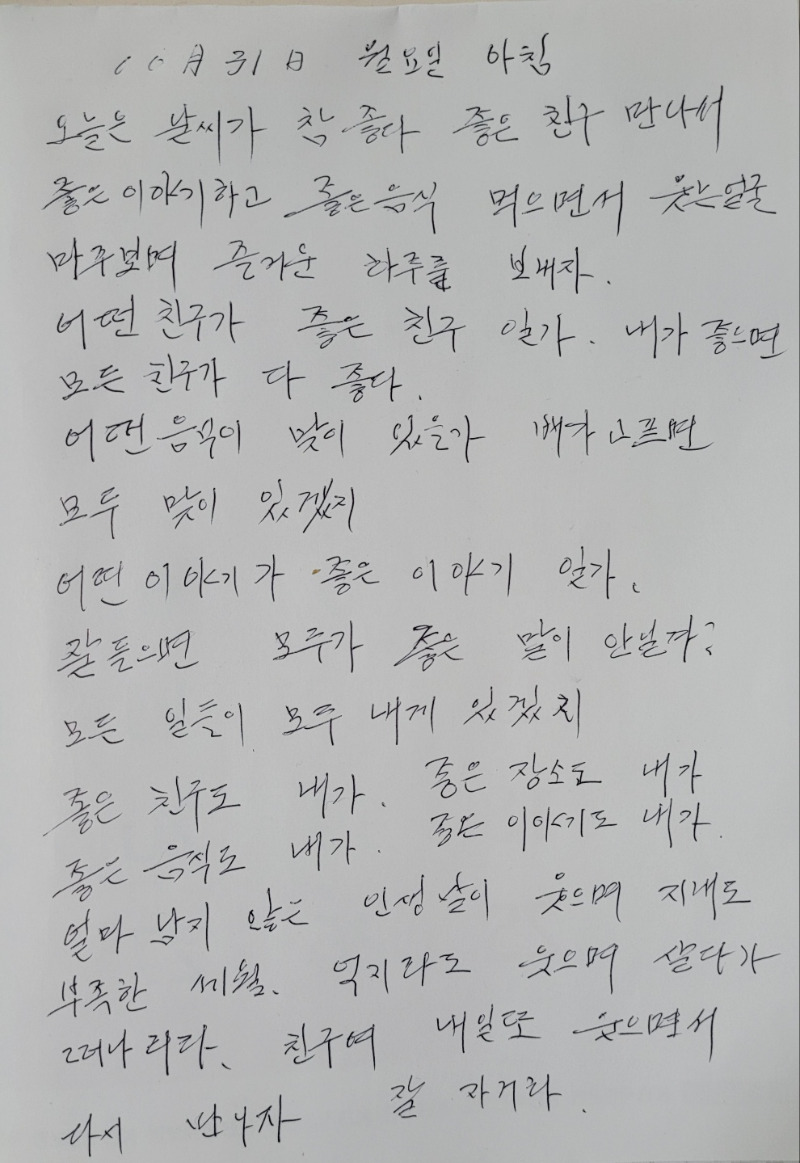 10月31日 월요일 아침
오늘은 날씨가 참 좋다 좋은 친구 만나서
좋은 이야기하고 좋은 음식 먹으면서 웃는 얼굴
마주보며 즐거운 하루를 보내자.
어떤 친구가 좋은 친구 일가. 내가 좋으면
모든 친구가 다 좋다.
어떤 음식이 맞이 있을가 배가 고프면
모두 맞이 있겠지
어떤 이야기가 좋은 이야기 일가.
잘 들으면 모두가 좋은 말이 안닐까?
모든 일들이 모두 내게 있겠지
좋은 친구도 내가. 좋은 장소도 내가
좋은 음식도 내가. 좋은 이야기도 내가.
얼마 남지 않은 인생 많이 웃으며 지내도
부족한 세월. 억지라도 웃으며 살다가
친구여 내일또 웃으면서
다시 만나자 잘 자거라.